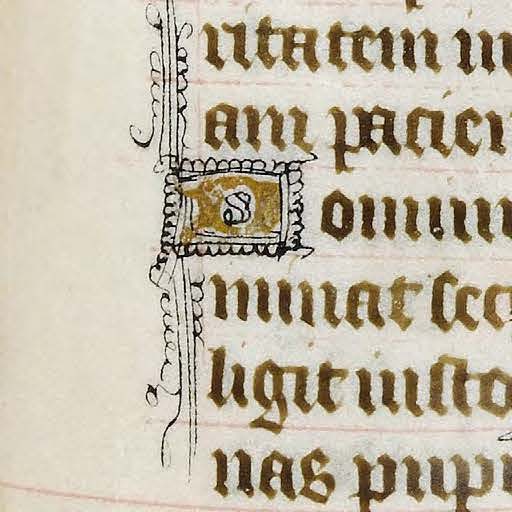 ritatem in
am pacien
Dominu
minat ſec
ligit iusto
nas pupi